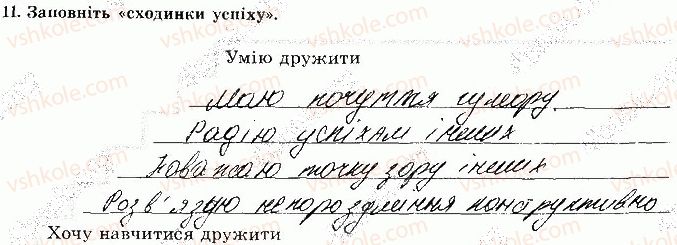 11. Заповніть «сходинки успіху».
Умію дружити
Маю почуття гумору
Радію успіхам інших
Поважаю точку зору інших
Розв'язую непорозуміння конструктивно
Хочу навчитися дружити